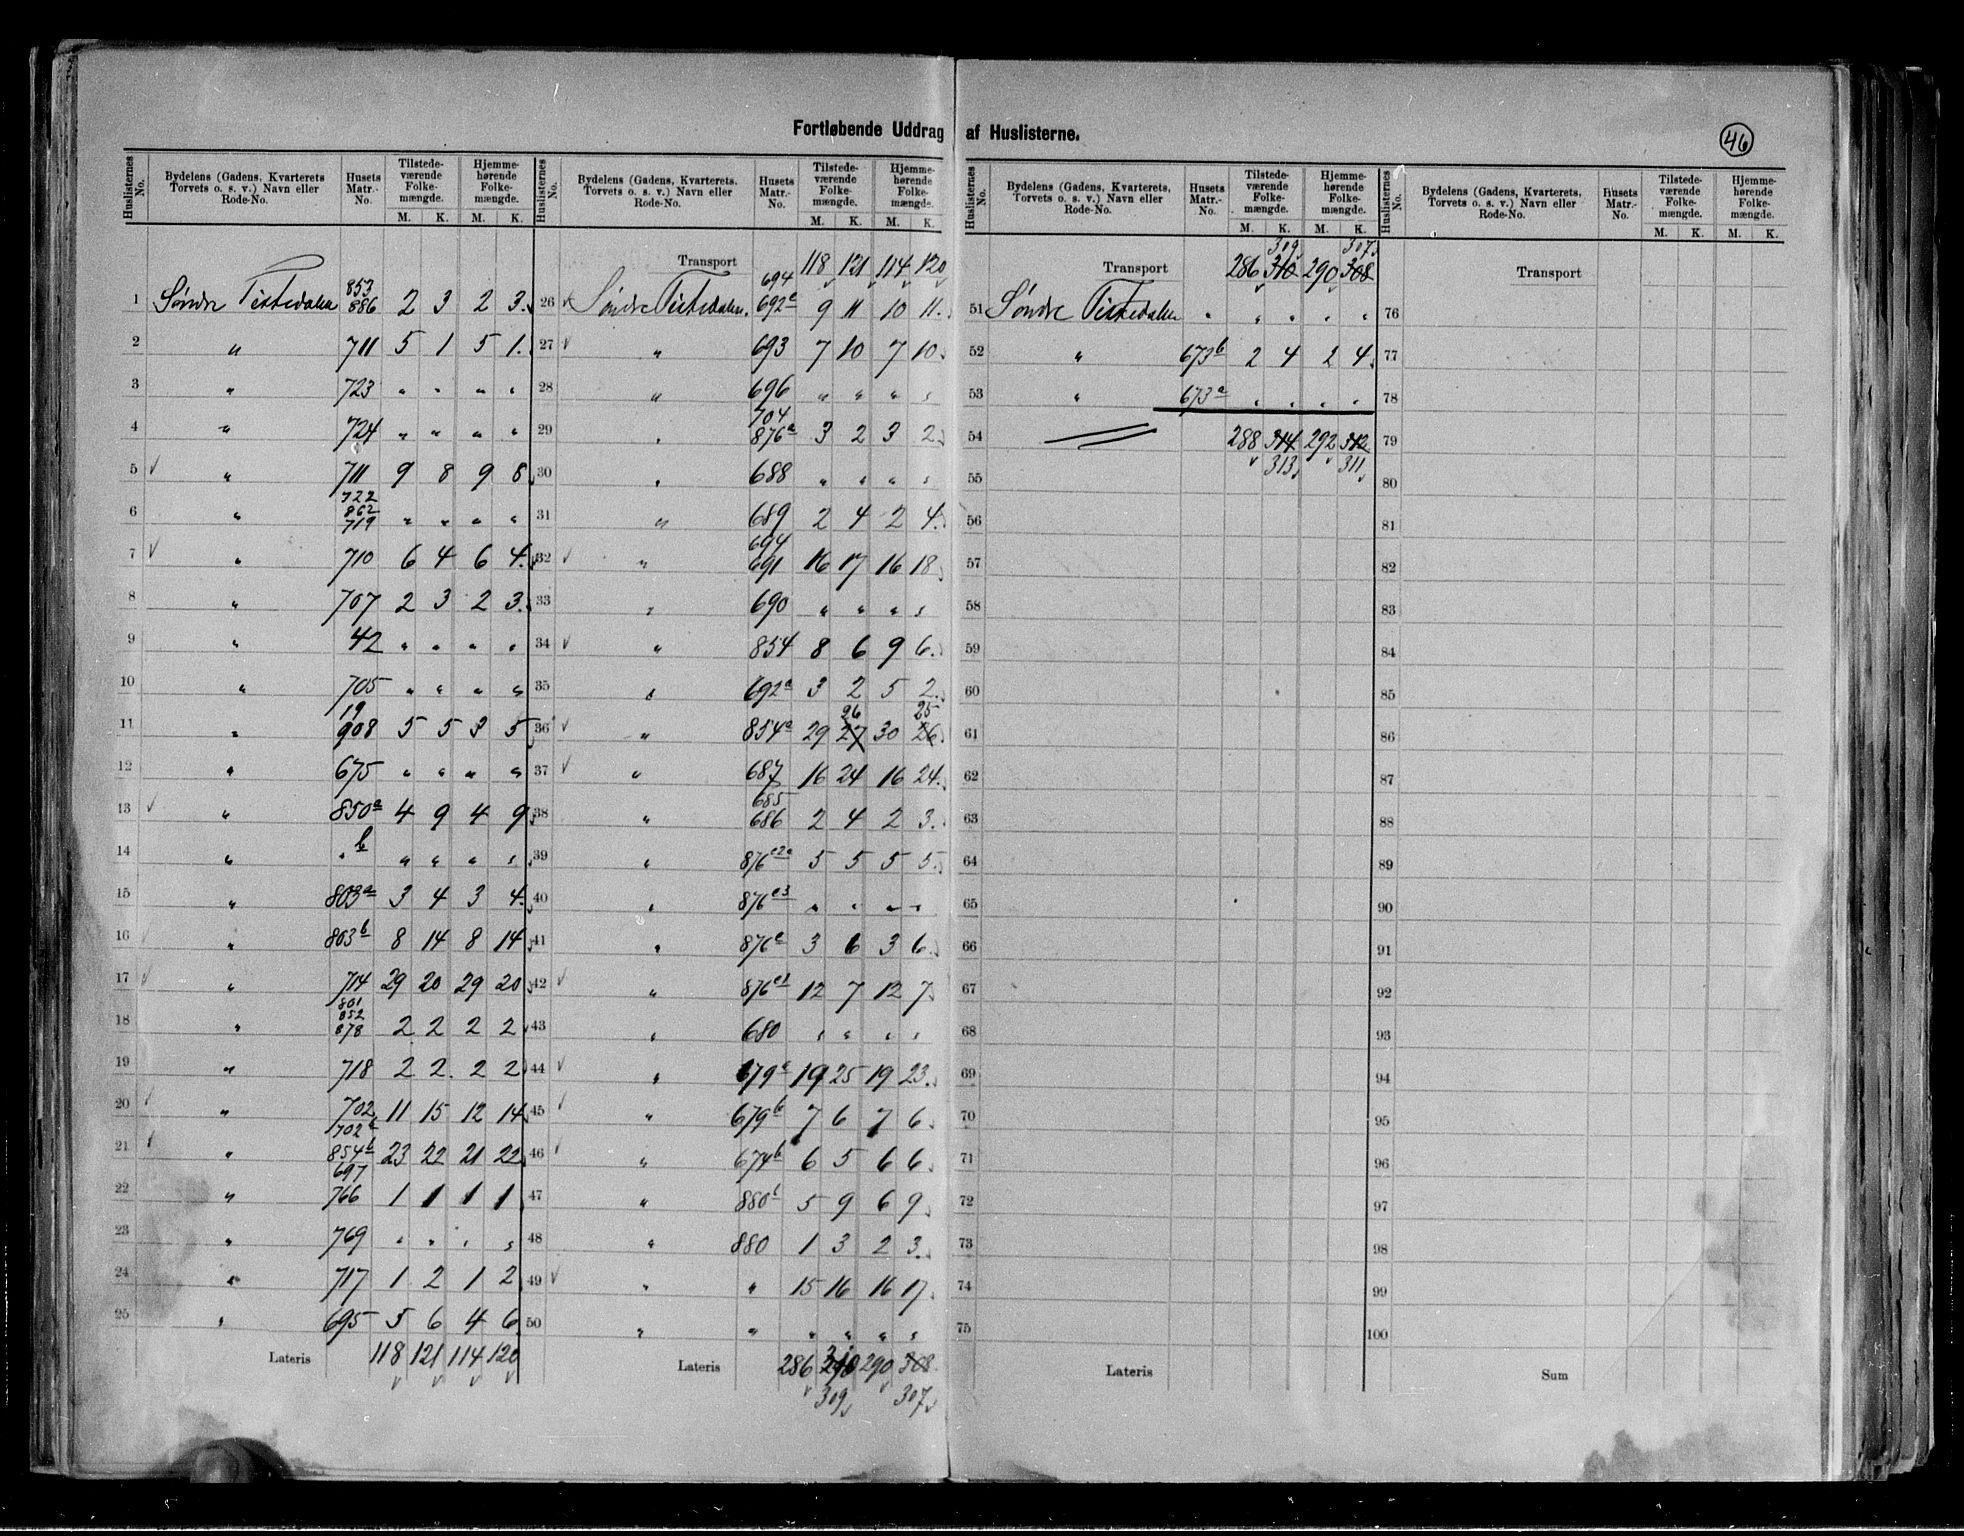 Fortløbende Uddrag af Huslisterne.
46
Huslisternes No. | Bydelens (Gadens, Kvarterets, Torvets o. s. v.) Navn eller Rode-No. | Husets Matr.-No. | Tilstedeværende Folkemængde. M. K. | Hjemmehørende Folkemængde. M. K.
1 Søndre Tistedalen 853 886 2 3 2 3
2 " 711 5 1 5 1
3 " 723 " " " "
4 " 724 " " " "
5 " 711 9 8 9 8
6 " 722 862 719 " " " "
7 " 710 6 4 6 4
8 " 707 2 3 2 3
9 " 42 " " " "
10 " 705 " " " "
11 " 19 908 5 5 3 5
12 " 675 " " " "
13 " 850a 4 9 4 9
14 " " b " " " "
15 " 803a 3 4 3 4
16 " 803b 8 14 8 14
17 " 714 29 20 29 20
18 " 801 852 878 2 2 2 2
19 " 718 2 2 2 2
20 " 702 702b 11 15 12 14
21 " 854b 23 22 21 22
22 " 697 766 1 1 1 1
23 " 769 " " " "
24 " 717 1 2 1 2
25 " 695 5 6 4 6
Lateris 118 121 114 120
Huslisternes No. | Bydelens (Gadens, Kvarterets, Torvets o. s. v.) Navn eller Rode-No. | Husets Matr.-No. | Tilstedeværende Folkemængde. M. K. | Hjemmehørende Folkemængde. M. K.
Transport 118 121 114 120
26 Søndre Tistedalen. 694 692c 9 11 10 11
27 " 693 7 10 7 10
28 " 696 " " " "
29 " 704 876a 3 2 3 2
30 " 688 " " " "
31 " 689 2 4 2 4
32 " 694 691 16 17 16 18
33 " 690 " " " "
34 " 854 8 6 9 6
35 " 692a 3 2 5 2
36 " 854a 29 27 26 30 26 25
37 " 687 16 24 16 24
38 " 685 686 2 4 2 3
39 " 876 5 5 5 5
40 " 876c3 " " " "
41 " 876e 3 6 3 6
42 " 876 12 7 12 7
43 " 680 " " " "
44 " 679a 19 25 19 23
45 " 679b 7 6 7 6
46 " 674b 6 5 6 6
47 " 880b 5 9 6 9
48 " 880 1 3 2 3
49 " " 15 16 16 17
50 " " " " " "
Lateris 286 310 290 308
309 307
Huslisternes No. | Bydelens (Gadens, Kvarterets, Torvets o. s. v.) Navn eller Rode-No. | Husets Matr.-No. | Tilstedeværende Folkemængde. M. K. | Hjemmehørende Folkemængde. M. K.
309 307
Transport 286 310 290 308
51 Søndre Tistedalen " " " " "
52 " 673b 2 4 2 4
53 " 673a " " " "
54 288 314 292 312
313 311
55
56
57
58
59
60
61
62
63
64
65
66
67
68
69
70
71
72
73
74
75
Lateris
Huslisternes No. | Bydelens (Gadens, Kvarterets, Torvets o. s. v.) Navn eller Rode-No. | Husets Matr.-No. | Tilstedeværende Folkemængde. M. K. | Hjemmehørende Folkemængde. M. K.
Transport
76
77
78
79
80
81
82
83
84
85
86
87
88
89
90
91
92
93
94
95
96
97
98
99
100
Sum